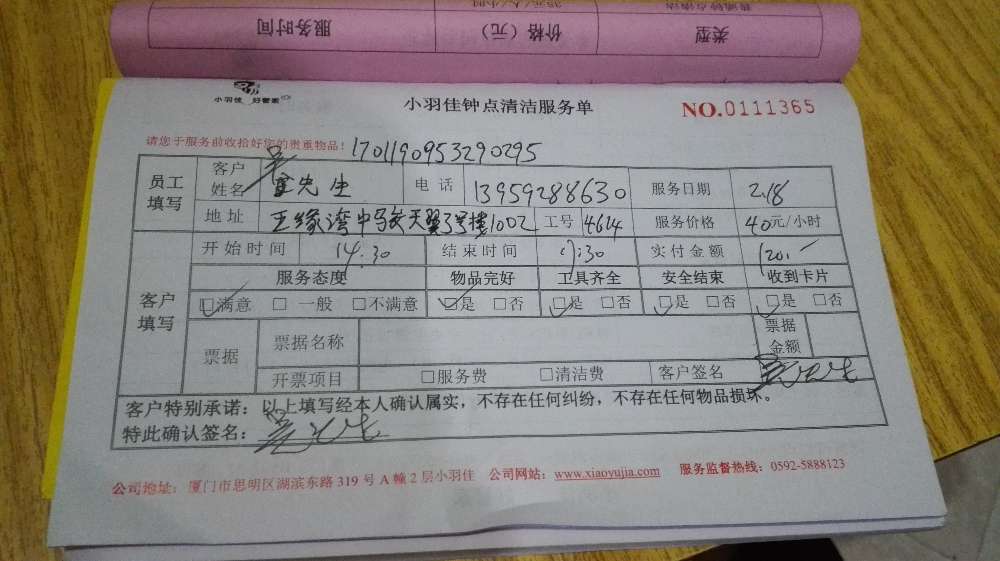 服务时间 价格（元） 类型
小羽佳 好管家
小羽佳钟点清洁服务单 NO.0111365
请您于服务前收拾好您的贵重物品！ 1701190953290295
员工填写 客户姓名 先生 电话 13959288630 服务日期 2.18
地址 工号 4614 服务价格 40元/小时
客户填写 开始时间 14:30 结束时间 17:30 实付金额 120.-
服务态度 物品完好 工具齐全 安全结束 收到卡片
☑满意 □一般 □不满意 ☑是 □否 ☑是 □否 ☑是 □否 ☑是 □否
票据 票据名称 票据金额
开票项目 □服务费 □清洁费 客户签名
客户特别承诺：以上填写经本人确认属实，不存在任何纠纷，不存在任何物品损坏。
特此确认签名：
公司地址：厦门市思明区湖滨东路319号A幢2层小羽佳 公司网站：www.xiaoyujia.com 服务监督热线：0592-5888123